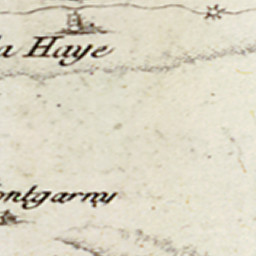 la Haye
ontgarny